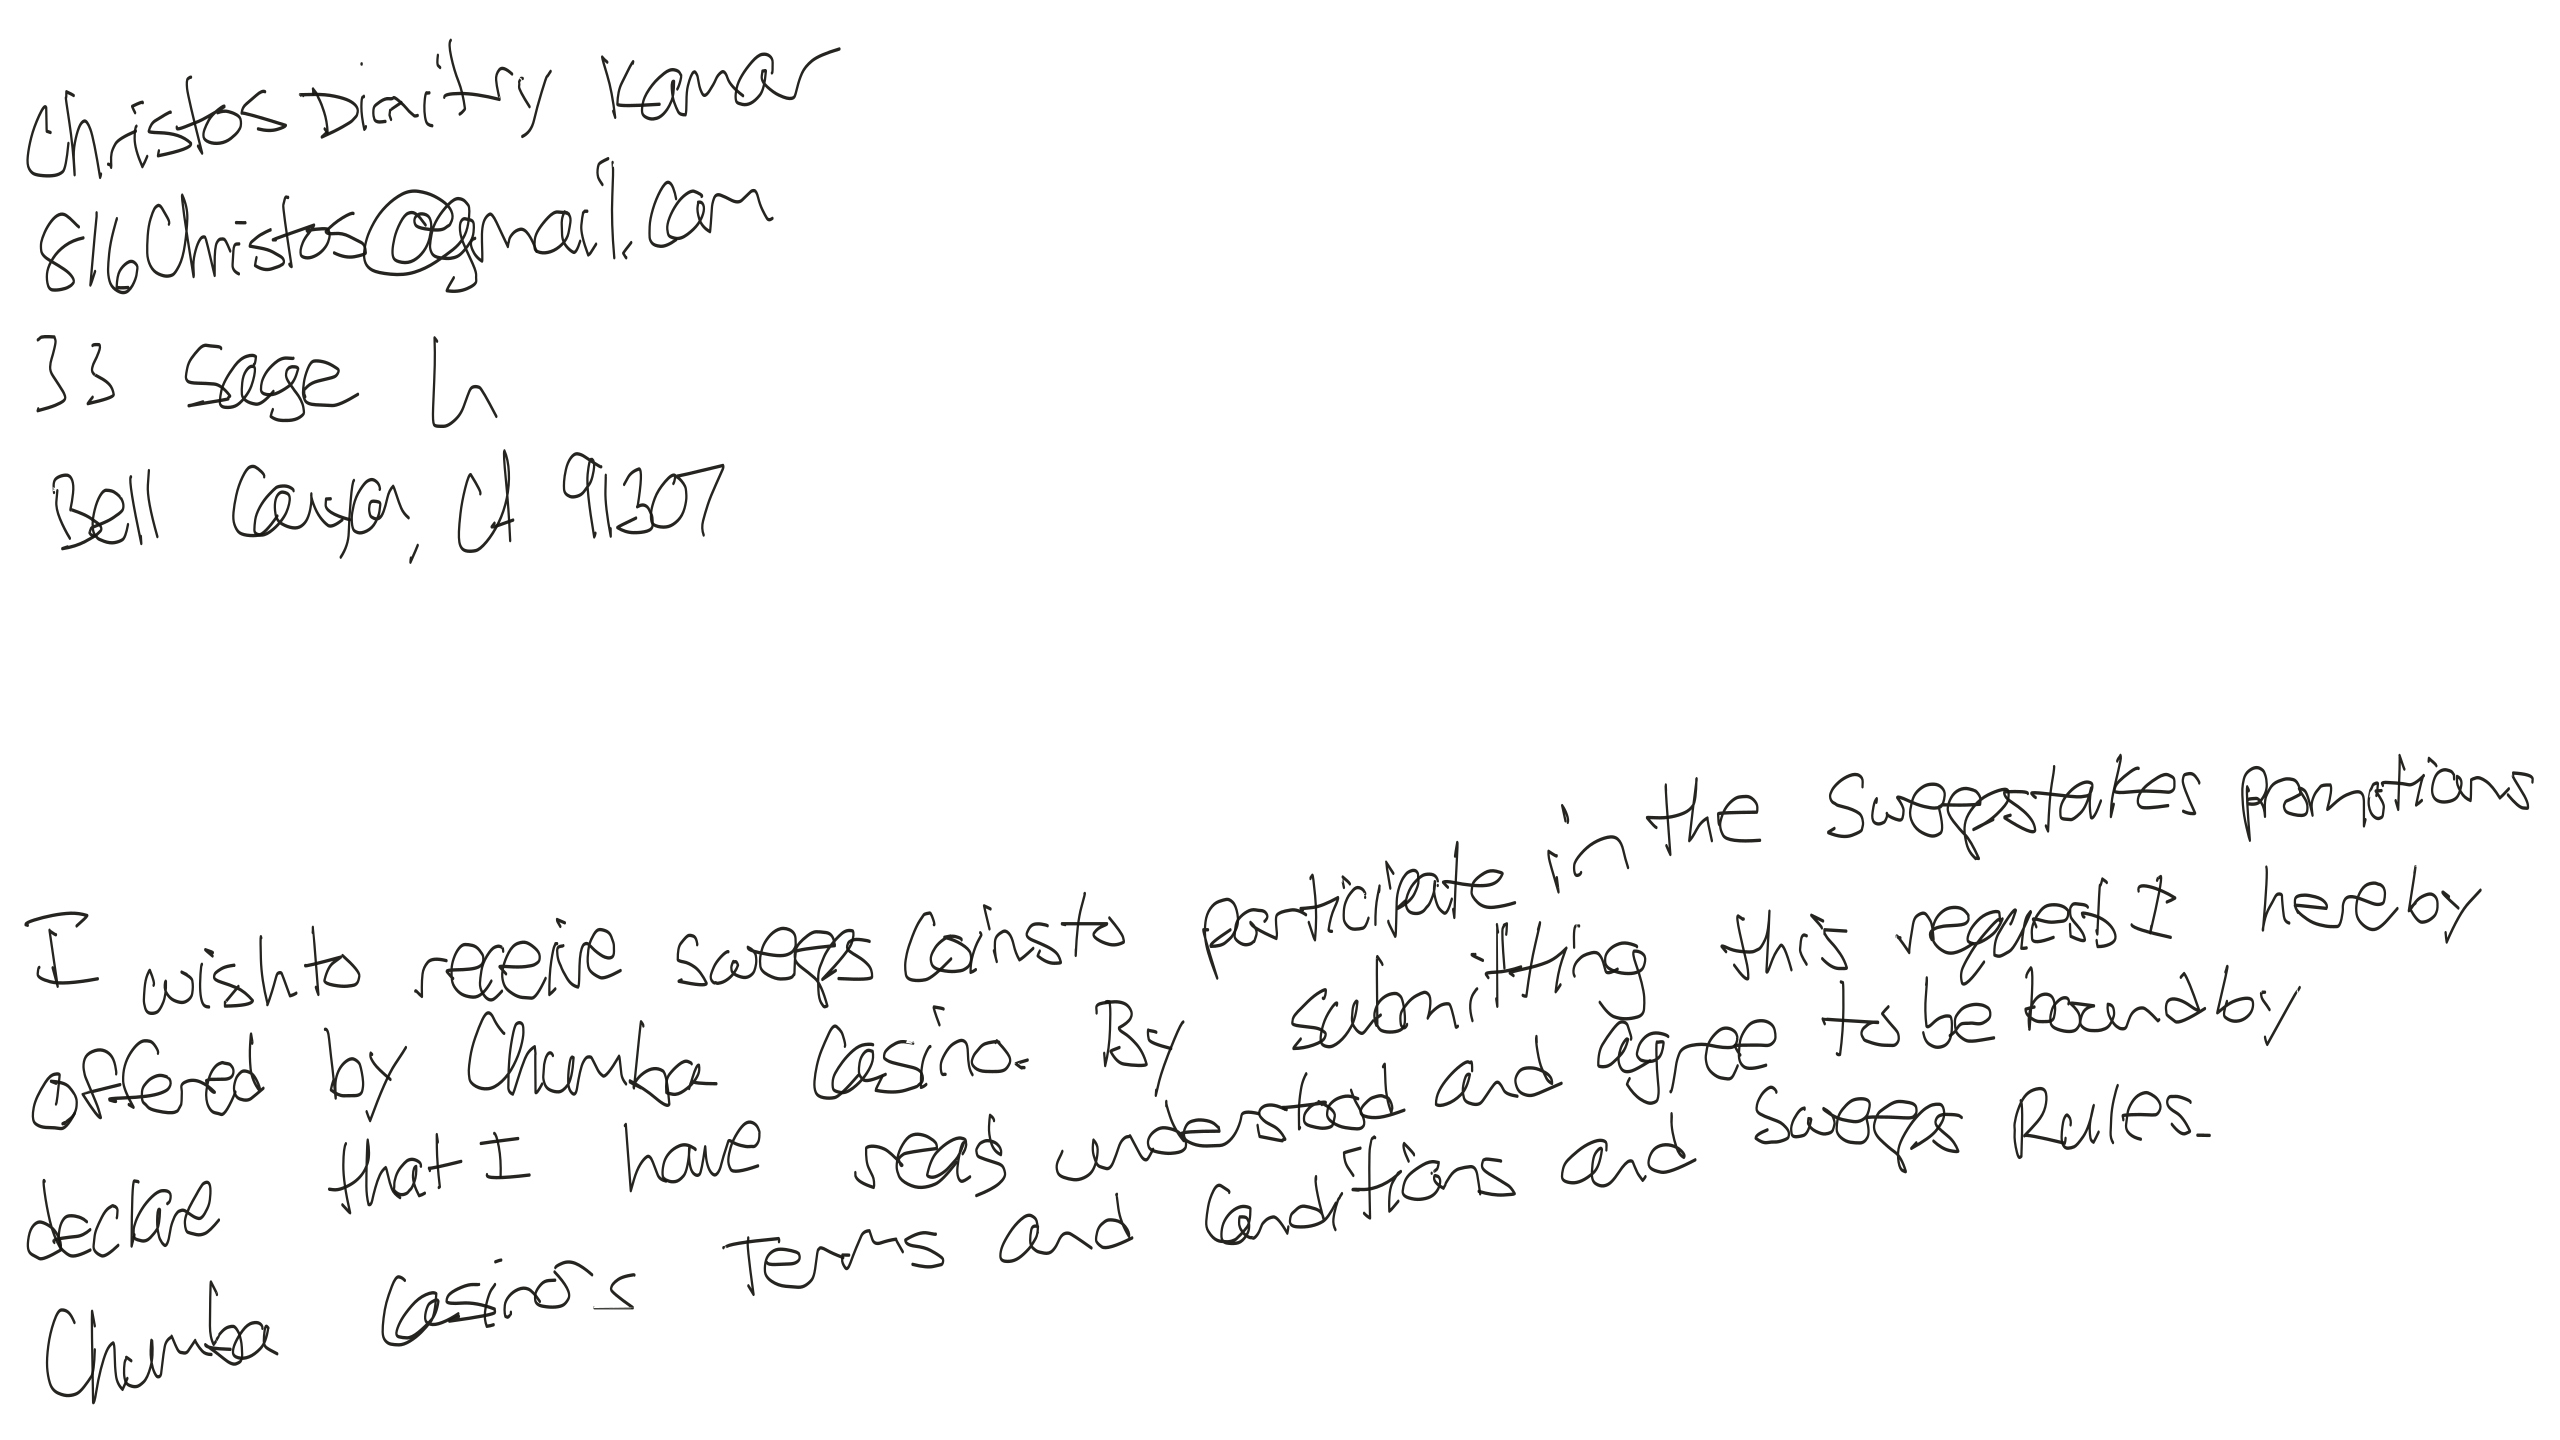 Christos Dimitry Kamar
816Christos@gmail.com
33 Sage Ln
Bell Canyon, CA 91307
I wish to receive sweeps Coins to participate in the Sweepstakes promotions
offered by Chumba Casino. By submitting this request I hereby
declare that I have read understood and agree to be bound by
Chumba Casino's Terms and Conditions and Sweeps Rules.